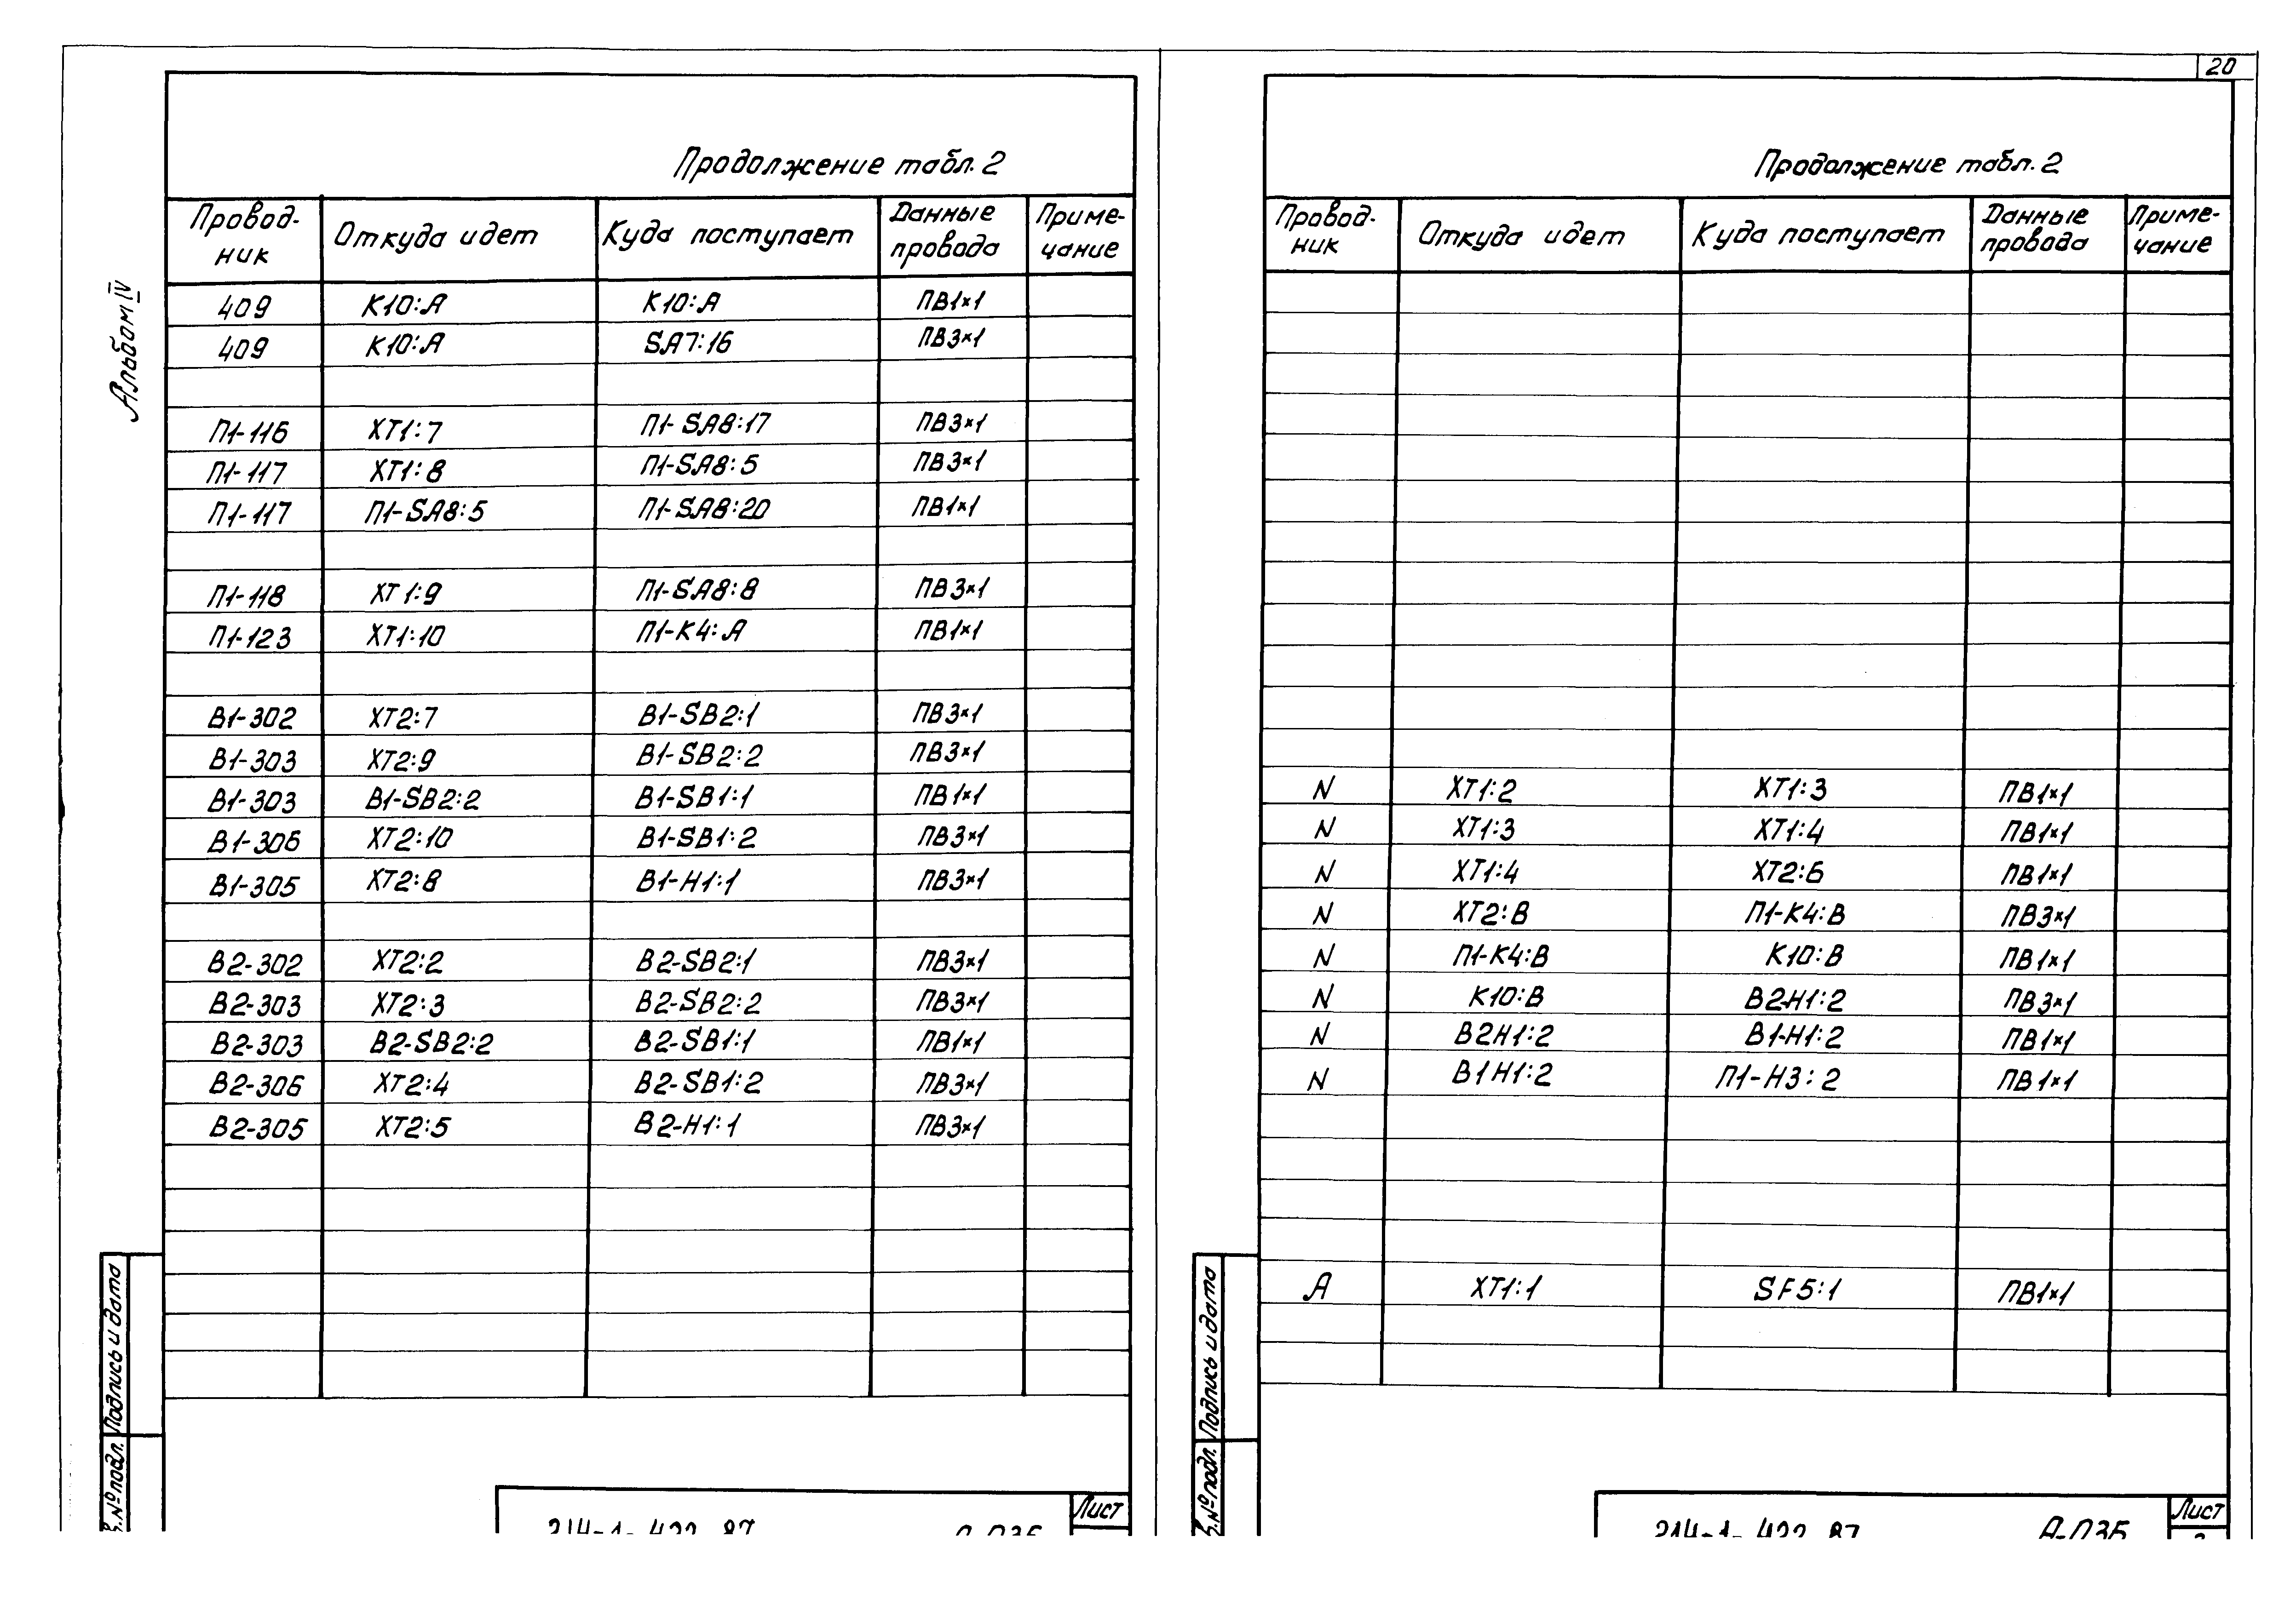 20
Альбом IV
Продолжение табл. 2
Провод-ник Откуда идет Куда поступает Данные провода Приме-чание
409 К10:А К10:А ПВ1×1
409 К10:А SA7:16 ПВ3×1
П1-116 ХТ1:7 П1-SA8:17 ПВ3×1
П1-117 ХТ1:8 П1-SA8:5 ПВ3×1
П1-117 П1-SA8:5 П1-SA8:20 ПВ1×1
П1-118 ХТ1:9 П1-SA8:8 ПВ3×1
П1-123 ХТ1:10 П1-К4:А ПВ1×1
В1-302 ХТ2:7 В1-SB2:1 ПВ3×1
В1-303 ХТ2:9 В1-SB2:2 ПВ3×1
В1-303 В1-SB2:2 В1-SB1:1 ПВ1×1
В1-306 ХТ2:10 В1-SB1:2 ПВ3×1
В1-305 ХТ2:8 В1-Н1:1 ПВ3×1
В2-302 ХТ2:2 В2-SB2:1 ПВ3×1
В2-303 ХТ2:3 В2-SB2:2 ПВ3×1
В2-303 В2-SB2:2 В2-SB1:1 ПВ1×1
В2-306 ХТ2:4 В2-SB1:2 ПВ3×1
В2-305 ХТ2:5 В2-Н1:1 ПВ3×1
Подпись и дата
№ подл.
Лист
Продолжение табл. 2
Провод-ник Откуда идет Куда поступает Данные провода Приме-чание
N ХТ1:2 ХТ1:3 ПВ1×1
N ХТ1:3 ХТ1:4 ПВ1×1
N ХТ1:4 ХТ2:6 ПВ1×1
N ХТ2:В П1-К4:В ПВ3×1
N П1-К4:В К10:В ПВ1×1
N К10:В В2-Н1:2 ПВ3×1
N В2Н1:2 В1-Н1:2 ПВ1×1
N В1Н1:2 П1-Н3:2 ПВ1×1
А ХТ1:1 SF5:1 ПВ1×1
Подпись и дата
№ подл.
Лист